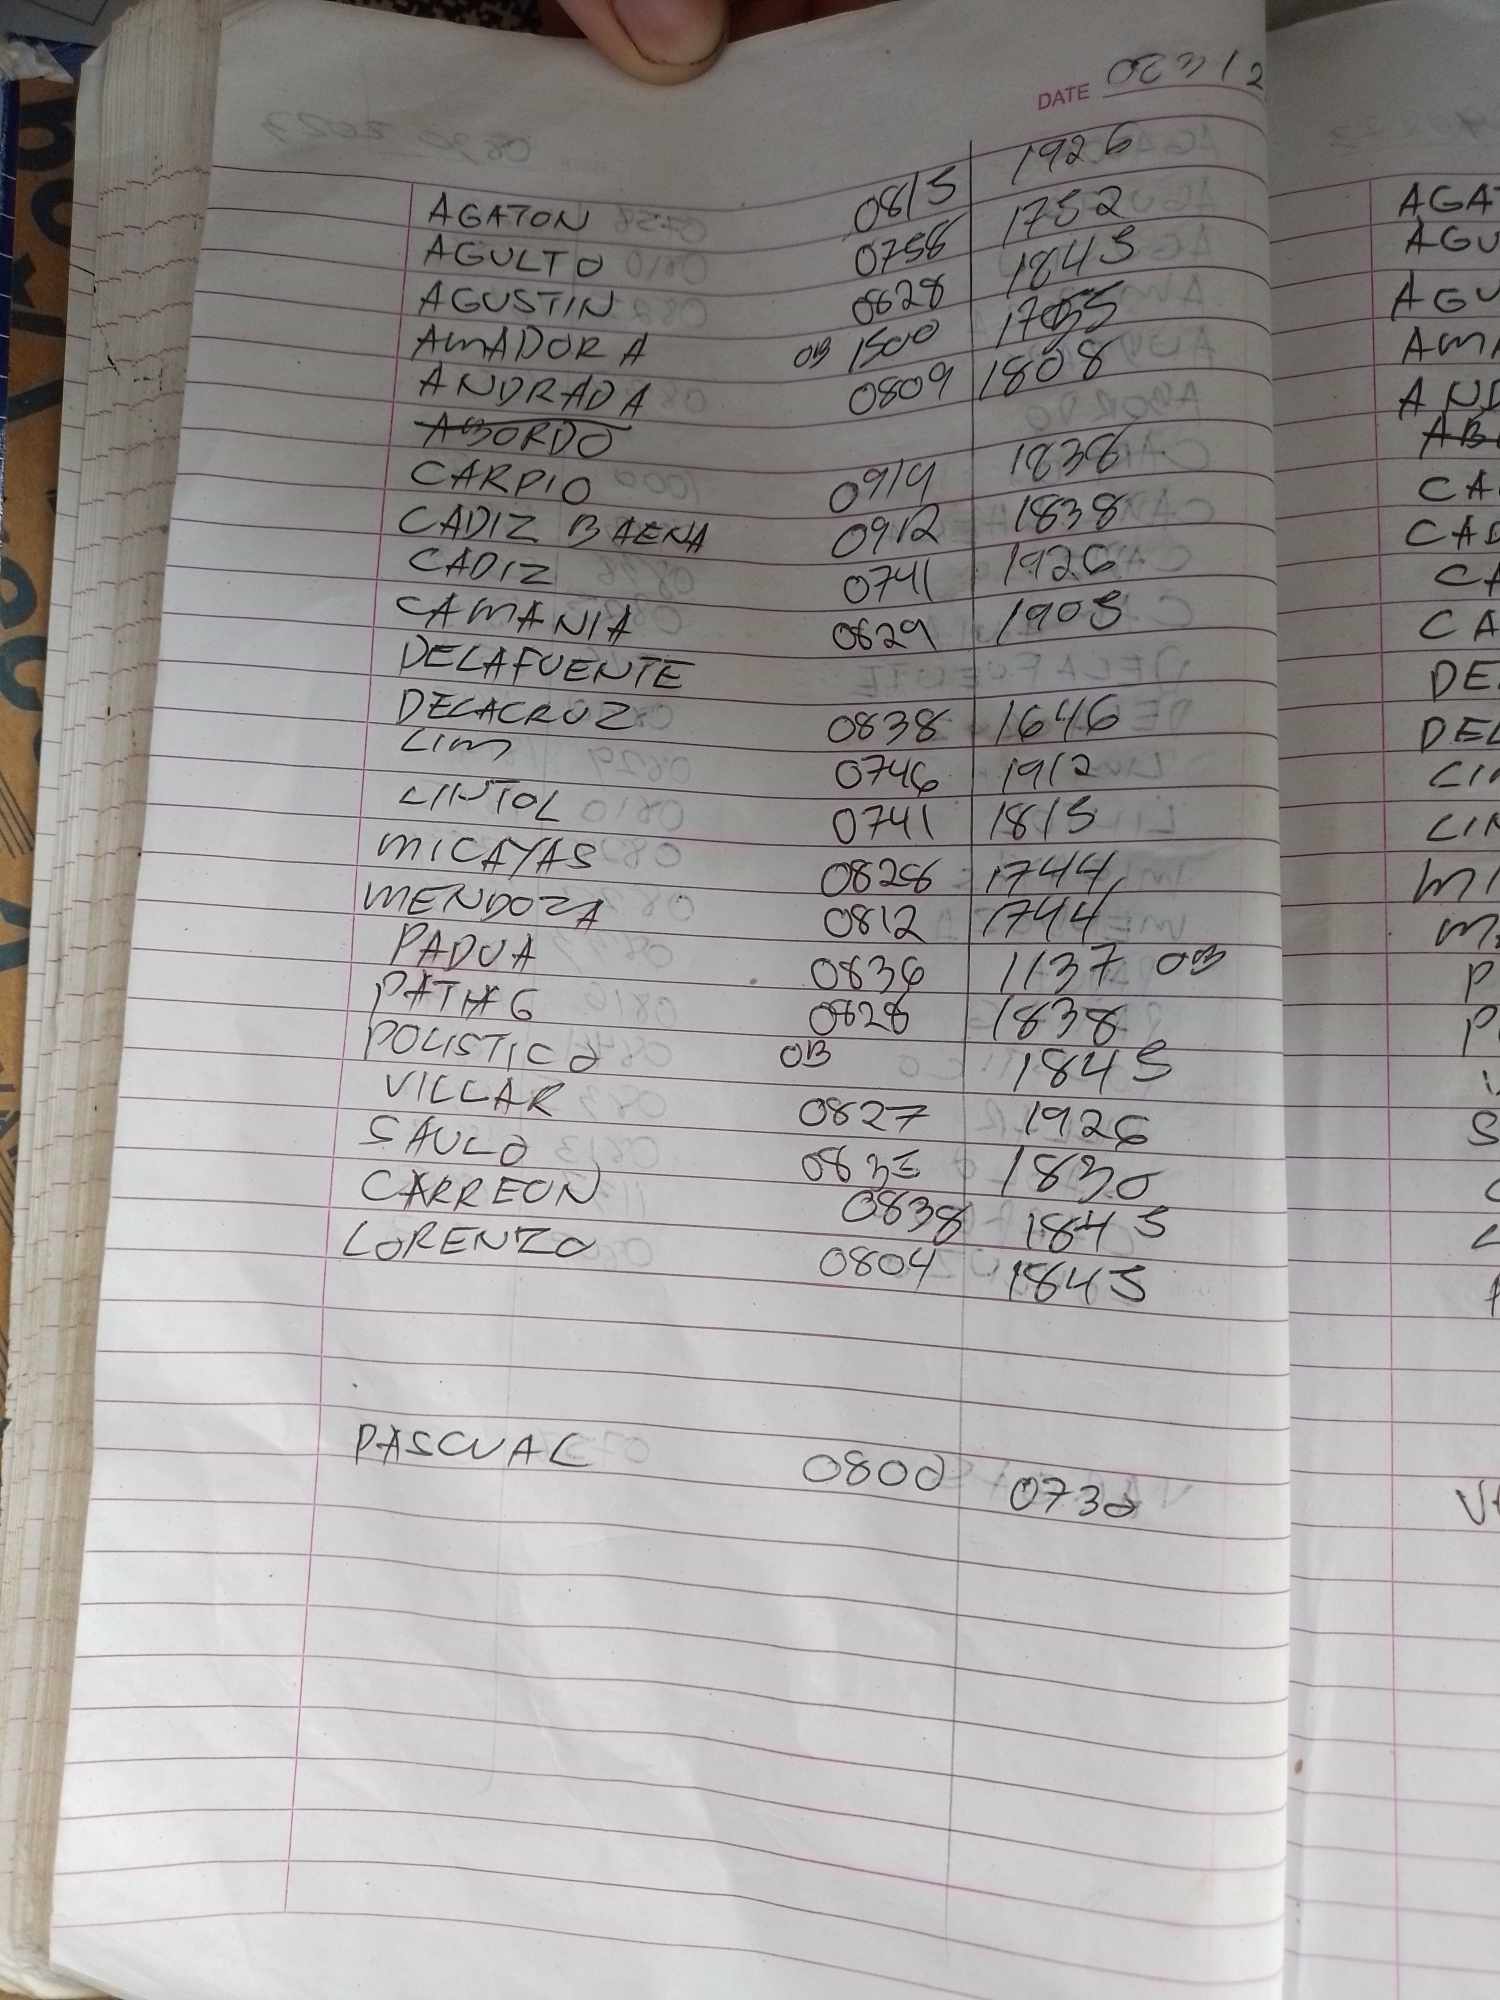 DATE
AGATON 0815 1926
AGULTO 0758 1752
AGUSTIN 0828 1845
AMADORA OB 1500
ANDRADA 0809 1808
ABORDO
CARPIO 0914 1838
CADIZ BAENA 0912 1838
CADIZ 0741 1926
CAMANIA 0829 1905
DELAFUENTE
DELACRUZ 0838 1646
LIM 0746 1912
LINTOL 0741 1815
MICAYAS 0828 1744
MENDOZA 0812 1744
PADUA 0836 1137 OB
0828 1838
POLISTICO OB 1845
VILLAR 0827 1926
SAULO 0835 1830
CARREON 0838 1845
LORENZO 0804 1845
PASCUAL 0800 0730
AGA
AGU
AGU
AM
AND
AB
CA
CAD
CA
CA
DE
DEL
LI
LIN
MI
M
P
P
S